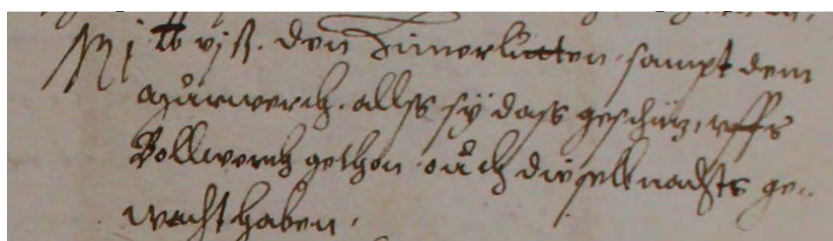 Mer j lb vj ß. den Zimerlütten. sampt dem
Murwerch. allss sÿ dass geschütz, vffs
Bollwerch gethon. ouch dieselb nachts ge-
wacht haben.